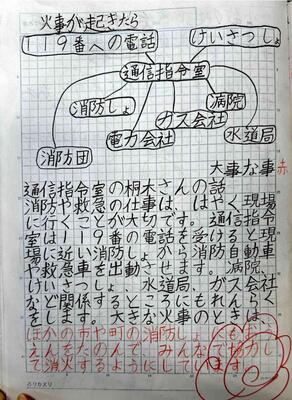 火事が起きたら
119番への電話
けいさつしょ
通信指令室
消防しょ
病院
ガス会社
電力会社
水道局
消防団
大事な事 赤
通信指令室の桐木さんの話
消防や救急の仕事は、はやく現場
に行くことが大切です。通信指令
室は119番の電話を受けると現
場に近い消防しょから消防自動車
や救急車を出動させます。病院、
けいさつしょ、水道局、ガス会社
など関係するところにもれんらく
をします。大きな火事のときは、
ほかの市や町の消防しょにもおう
えんをたのんで、みんなで協力し
て消火するようにしています。